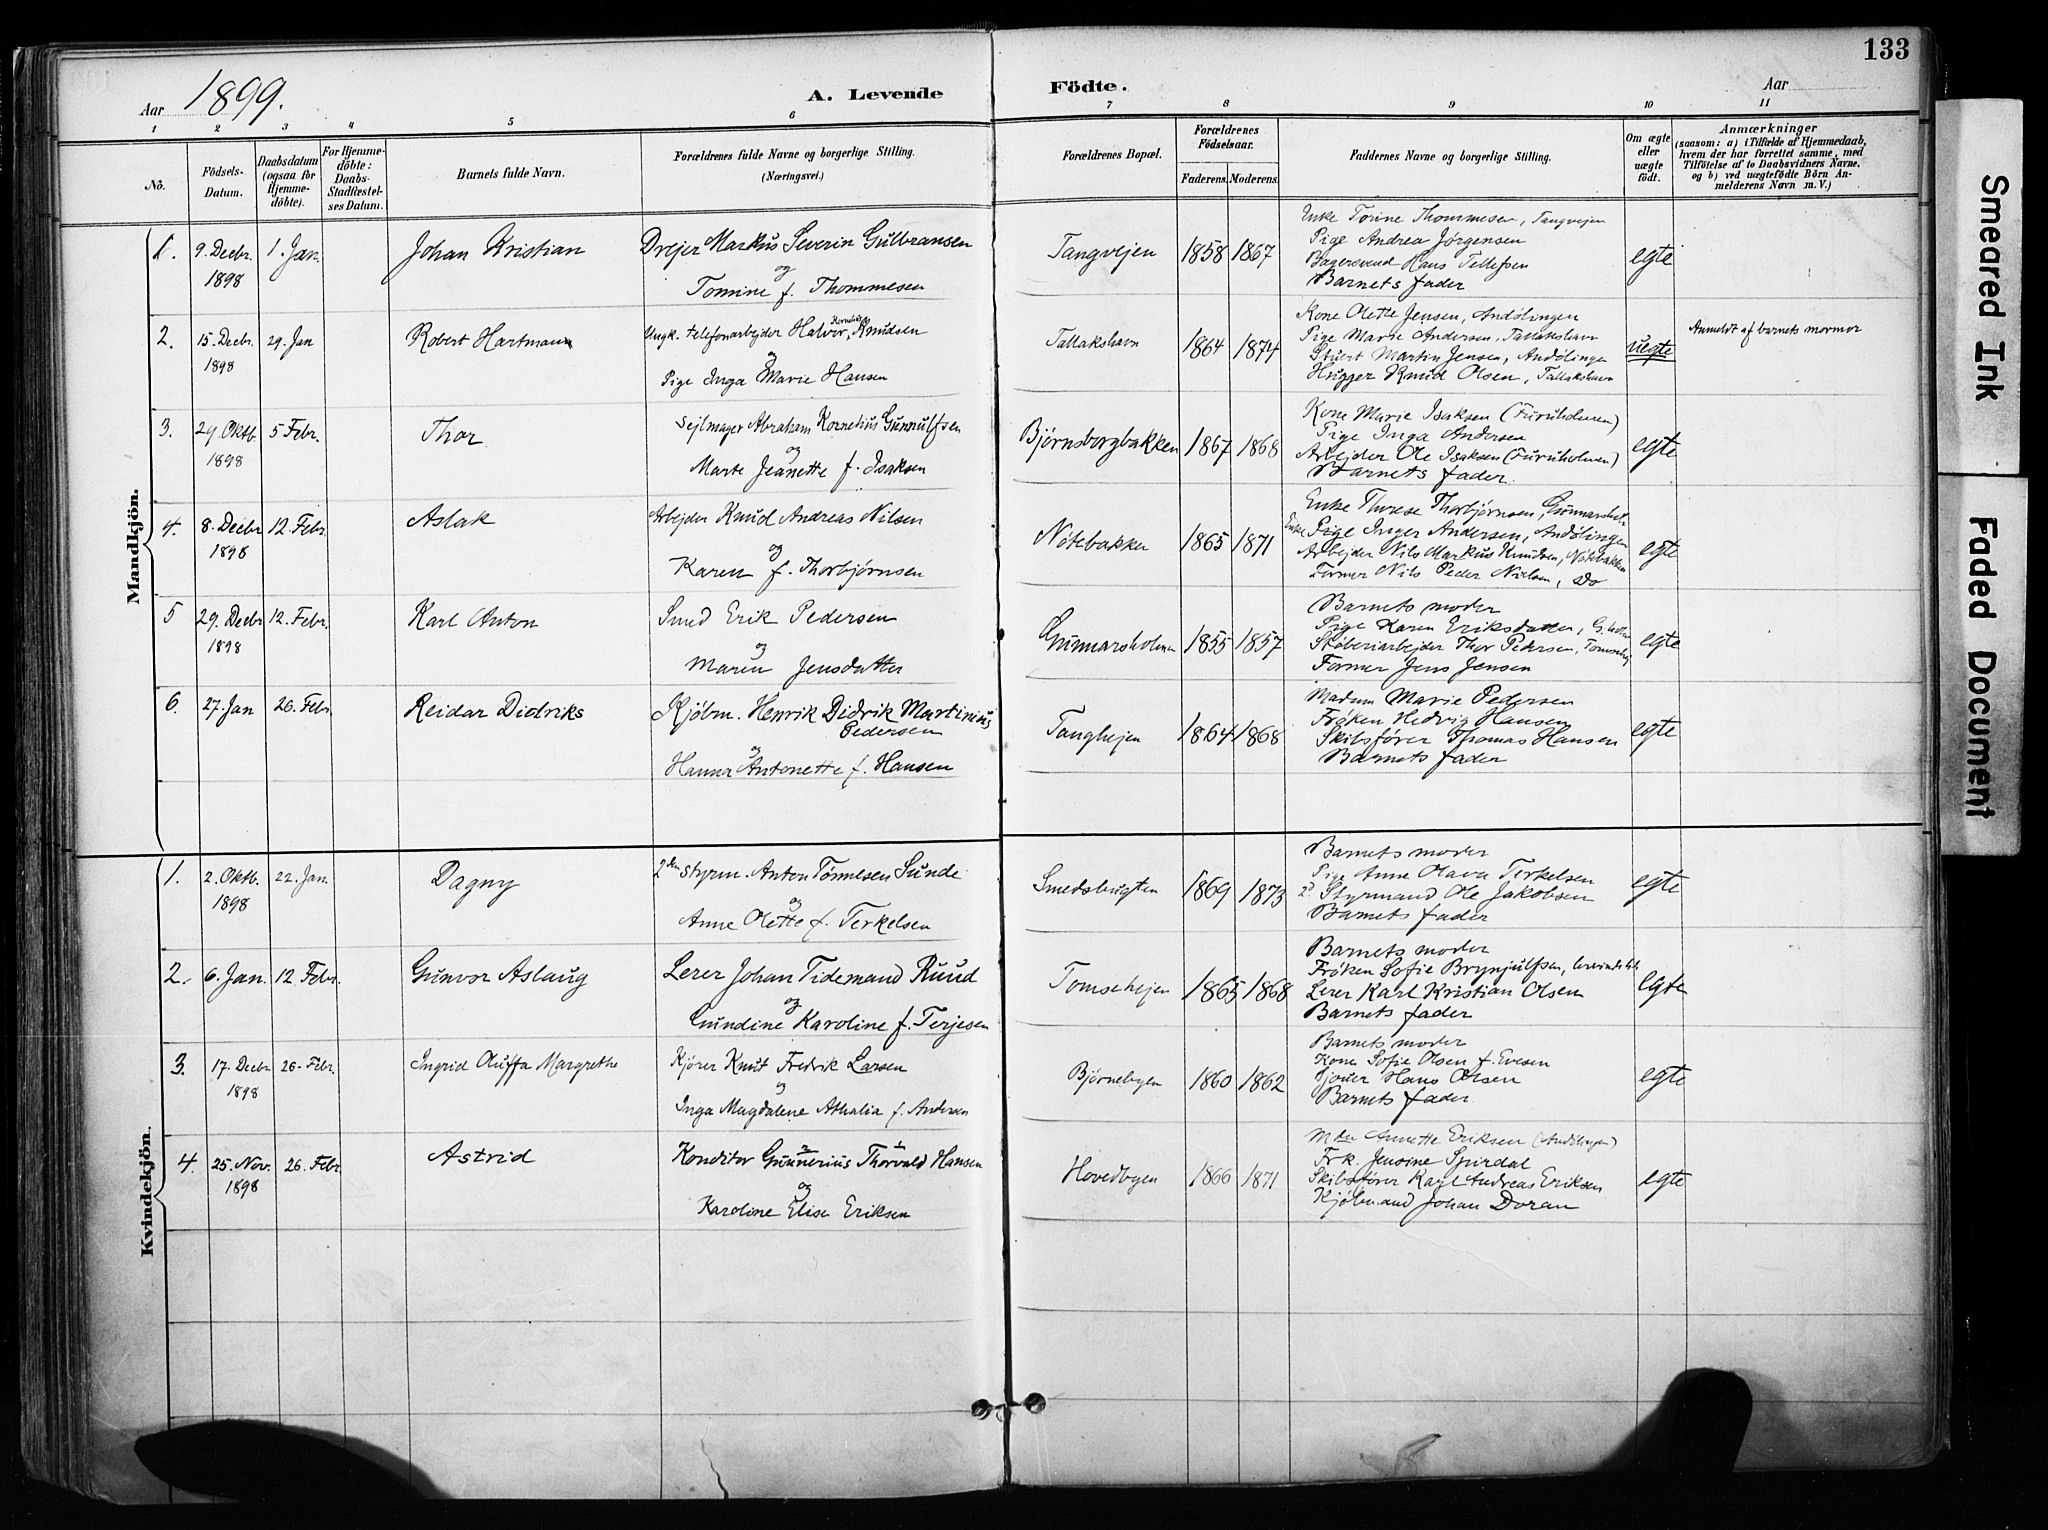 133
Aar 1899.
A. Levende Födte.
Aar
1 2 3 4 5 6 7 8 9 10 11
No.
Födsels-Datum.
Daabsdatum (ogsaa for Hjemme-döbte).
For Hjemme-döbte: Daabs-Stadfæstel-ses Datum.
Barnets fulde Navn.
Forældrenes fulde Navne og borgerlige Stilling.
(Næringsvei.)
Forældrenes Bopæl.
Forældrenes Födselsaar.
Faderens. Moderens.
Faddernes Navne og borgerlige Stilling.
Om ægte eller uægte födt.
Anmærkninger
(saasom: a) i Tilfælde af Hjemmedaab,
hvem der har forrettet samme, med
Tilföielse af to Daabsvidners Navne.
og b) ved uægtefödte Börn An-
melderens Navn m. V.)
Mandkjön.
1. 9. Decbr. 1898 1. Jan. Johan Kristian
Drejer Markus Severin Gulbransen
og
Tomine f. Thommesen
Tangvejen 1858 1867
Enke Torine Thommesen, Tangvejen
Pige Andrea Jørgensen
Bagersvend Hans Tellefsen
Barnets fader
egte
2. 15. Decbr. 1898 29. Jan Robert Hartman
Ungk. telefonarbejder Halvor Knudsen
og
Pige Inga Marie Hansen
Tallakshavn 1864 1874
Kone Olette Jensen, Andølingen
Pige Marie Andersen, Tallakshavn
Stuert Martin Jensen, Andølingen
Hugger Knud Olsen, Tallakshavn
uegte
Anmeldt af barnets mormor
3. 29. Oktb. 1898 5 Febr. Thor
Sejlmager Abraham Kornelius Gunnulfsen
og
Marte Jeanette f. Isaksen
Bjørnsborgbakken 1867 1868
Kone Marie Isaksen (Furuholmen)
Pige Inga Andersen
Arbejder Ole Isaksen (Furuholmen)
Barnets fader.
egte
4. 8. Decbr 1898 12. Febr. Aslak
Arbejder Knud Andreas Nilsen
og
Karen f. Thorbjørnsen
Nötebakken 1865 1871
Enke Therese Thorbjørnsen, Gunnarsholm
Enke Pige Inger Andersen, Andølingen
Arbejder Nils Markus Knudsen, Nötebakken
Former Nils Peder Nielsen, Do
egte
5 29. Decbr 1898 12. Febr. Karl Anton
Smed Erik Pedersen
og
Maren Jensdatter
Gunnarsholmen 1855 1857
Barnets moder
Pige Karen Eriksdatter,
Støberiarbejder Thor Pedersen,
Former Jens Jensen
egte
6. 27. Jan 26. Febr. Reidar Diedriks
Kjöbm. Henrik Didrik Martinius
Pedersen
og
Hanna Antonette f. Hansen
Tanghejen 1864 1868
Madam Marie Pedersen
Frøken Hedvig Hansen
Skibsfører Thomas Hansen
Barnets fader
egte
Kvindekjön.
1. 2. Oktb. 1898 22. Jan. Dagny
2den Styrm. Anton Tönnesen Sunde
og
Anne Olette f. Terkelsen
Smedsbugten 1869 1873
Barnets moder
Pige Anne Olava Terkelsen
2d Styrmand Ole Jakobsen
Barnets fader
egte
2. 6. Jan. 12. Febr. Gunvor Aslaug
Lerer Johan Tidemand Ruud
og
Gundine Karoline f. Terjesen
Tomsehejen 1865 1868
Barnets moder
Frøken Sofie Brynjulfsen,
Lerer Karl Kristian Olsen
Barnets fader
egte
3. 17. Decbr 1898 26. Febr. Ingrid Auffa Margrethe
Kjører Knut Fredrik Larsen
og
Inga Magdalene Athalia f. Andersen
Bjørnebyen 1860 1862
Barnets moder
Kone Sofie Olsen f. Evesen
Hans Olsen
Barnets fader.
egte
4. 25. Nov. 1898 26. Febr Astrid
Konditor Gunnerius Thorvald Hansen
og
Karoline Elise Eriksen
Hovedbyen 1866 1871
Annette Eriksen (Andølingen)
Frk. Jensine Spirdal
Skibsfører Karl Andreas Eriksen
Kjøbmand Johan Doran
egte
Smeared Ink
Faded Document